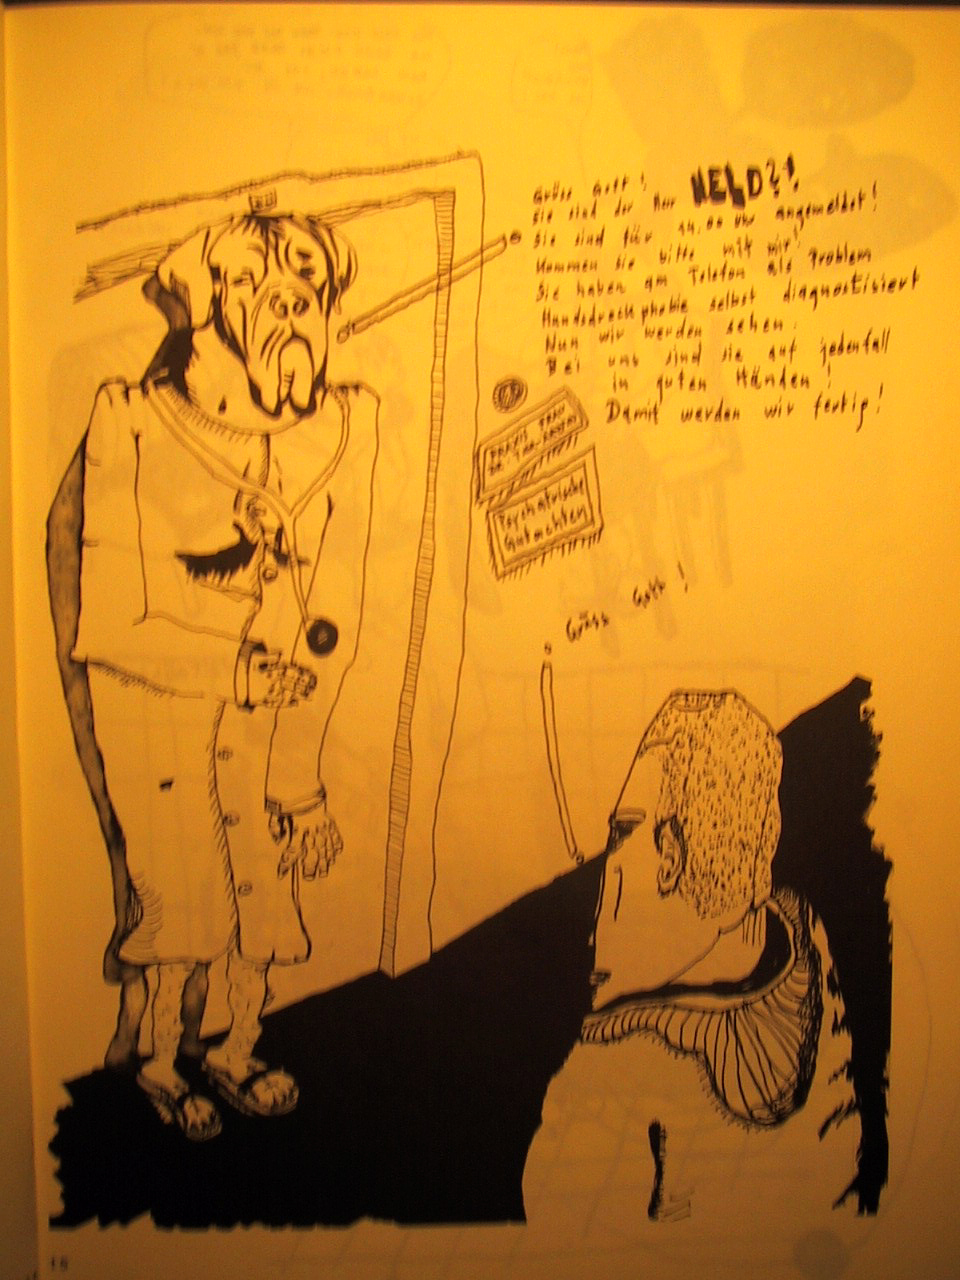 Grüss Gott!
Sie sind der Herr HELD?!
Sie sind für 14.00 Uhr angemeldet!
Kommen sie bitte mit mir!
Sie haben am Telefon als Problem
Handsdruckphobie selbst diagnostisiert
Nun wir werden sehen.
Bei uns sind sie auf jedenfall
in guten Händen!
Damit werden wir fertig!
PRAXIS FRAU
Psychiatrische
Gutachten
Grüss Gott!
18